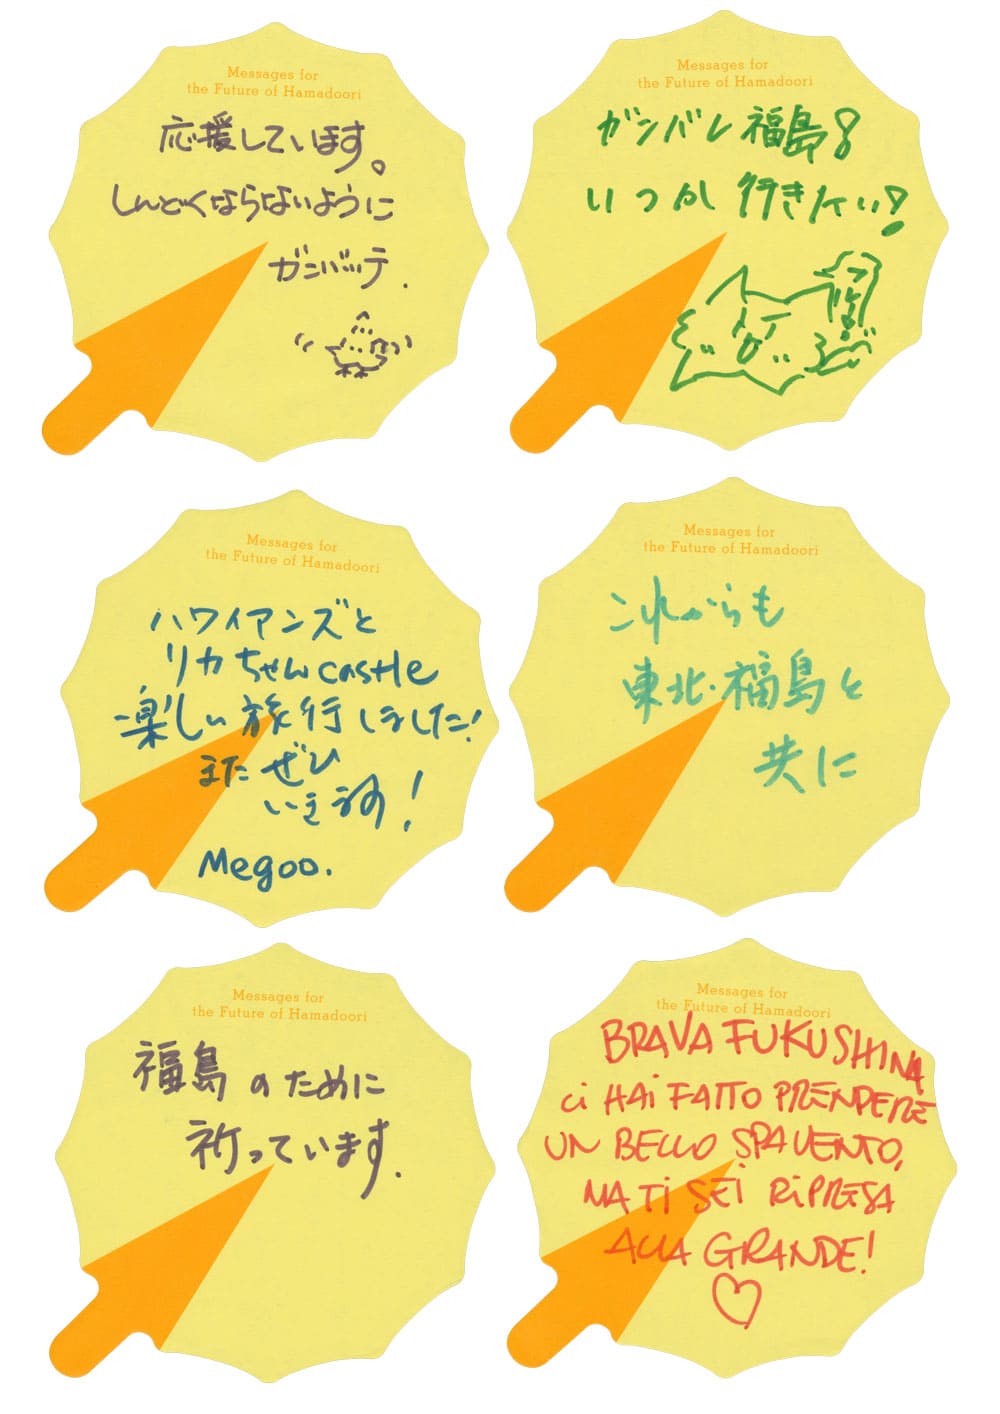 Messages for
the Future of Hamadoori
応援しています。
しんどくならないように
ガンバッテ.
Messages for
the Future of Hamadoori
ガンバレ福島!
いつか行きたい!
Messages for
the Future of Hamadoori
ハワイアンズと
リカちゃんcastle
楽しい旅行しました!
またぜひ
いきます!
Megoo.
Messages for
the Future of Hamadoori
これからも
東北・福島と
共に
Messages for
the Future of Hamadoori
福島のために
祈っています.
Messages for
the Future of Hamadoori
BRAVA FUKUSHIMA
ci HAi FATTO PRENDERE
UN BELLO SPAVENTO,
MA Ti SEi RiPRESA
ALLA GRANDE!